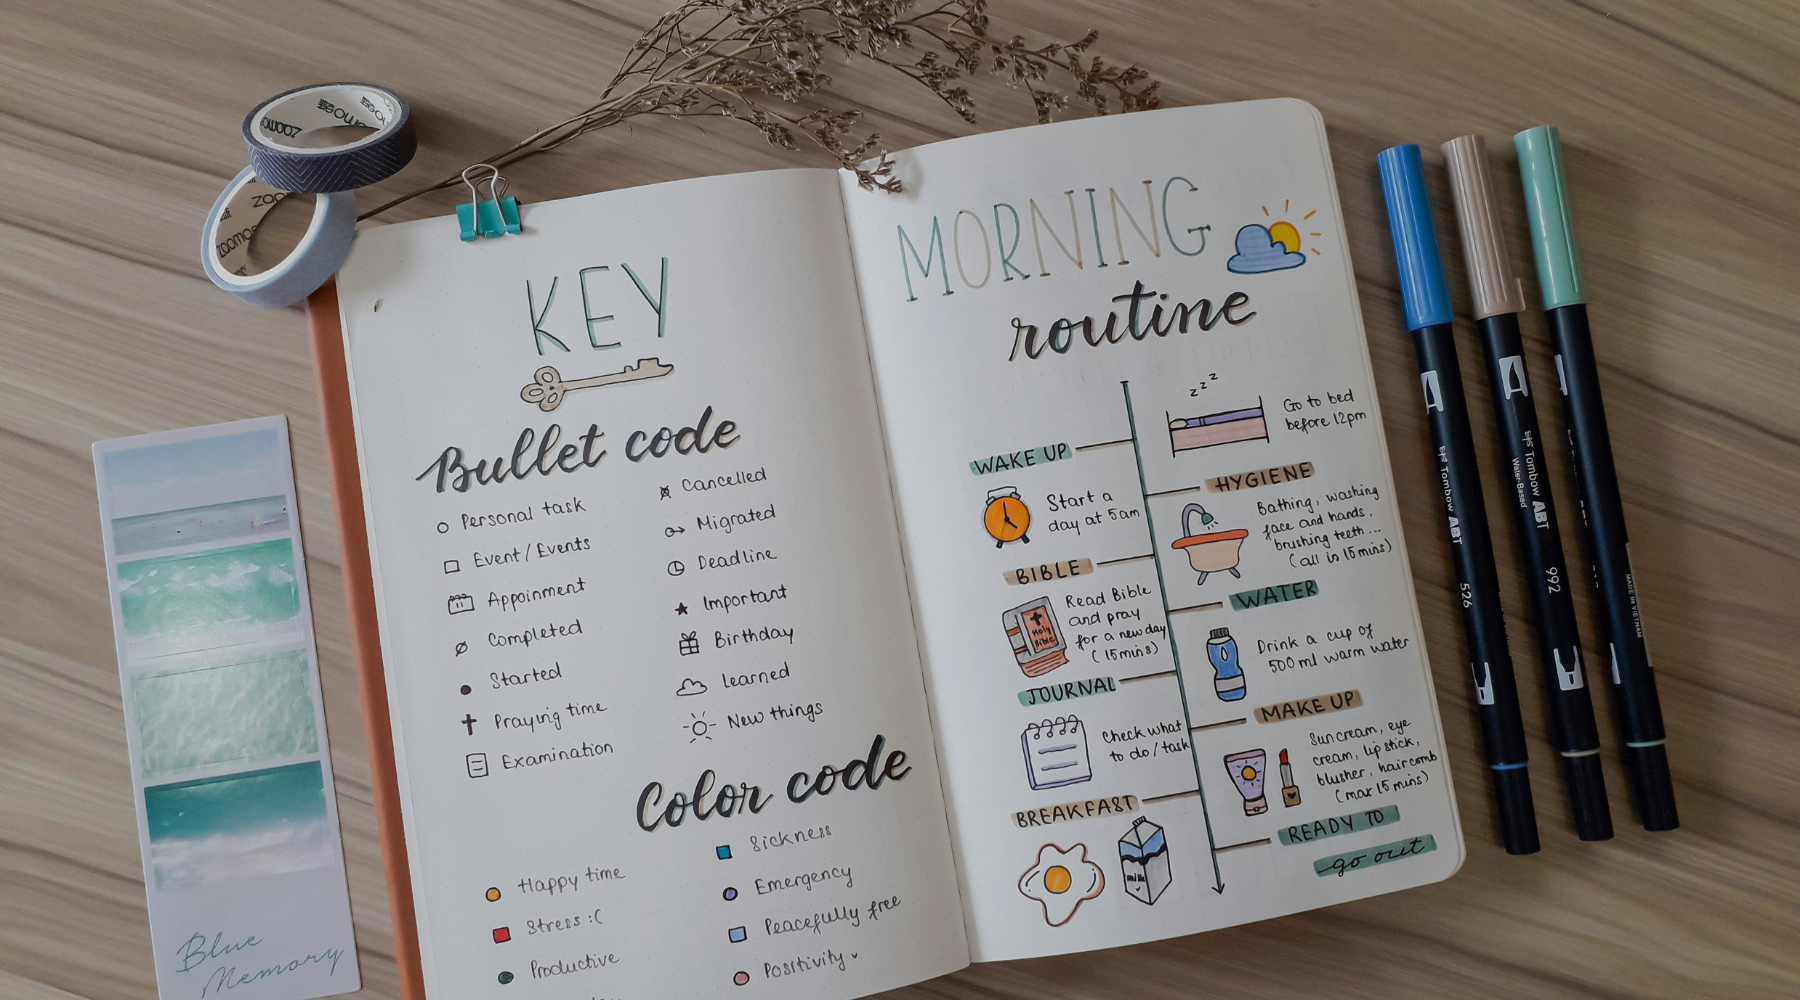 KEY
Bullet code
Personal task
Event / Events
Appoinment
Completed
Started
Praying time
Examination
Cancelled
Migrated
Deadline
Important
Birthday
Learned
New things
Color code
Happy time
Stress :(
Productive
Sickness
Emergency
Peacefully free
Positivity
MORNING
routine
z z z
Go to bed
before 12pm
WAKE UP
Start a
day at 5am
HYGIENE
Bathing, washing
face and hands,
brushing teeth...
(all in 15 mins)
BIBLE
Holy
Bible
Read Bible
and pray
for a new day
(15mins)
WATER
Drink a cup of
500 ml warm water
JOURNAL
Check what
to do / task
MAKE UP
Suncream, eye
cream, lipstick,
blusher, haircomb
(max 15 mins)
BREAKFAST
milk
READY TO
go out
Blue
Memory
zoomoe
zoomo
Tombow ABT
526
Tombow ABT
Water-Based
992
MADE IN VIETNAM